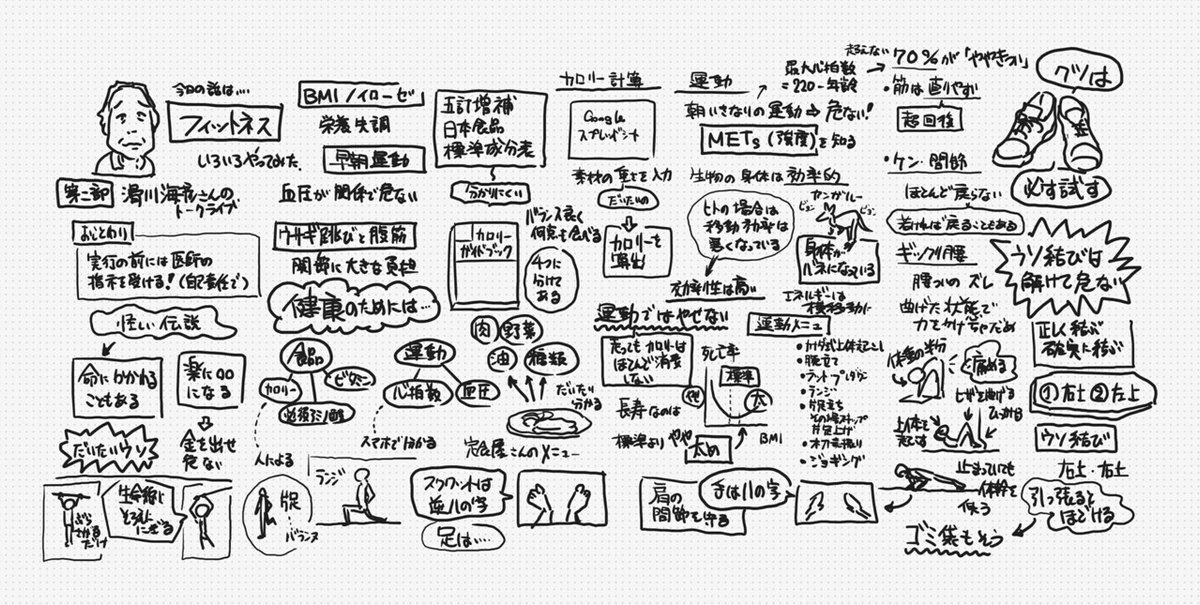 今日の話は…
フィットネス
いろいろやってみた
第二部
滑川海彦さんの
トークライブ
おことわり
実行の前には医師の
指示を受ける!(自己責任で)
怪しい伝説
命にかかわる
こともある
楽に○○
になる
だいたいウソ
金を出せ
危ない
ぶら
さがる
だけ
生命線に
そろえて
にぎる
BMIノイローゼ
栄養失調
早朝運動
血圧が関係で危ない
ウサギ跳びと腹筋
関節に大きな負担
健康のためには…
食品
カロリー
ビタミン
必須アミノ酸
人による
運動
心拍数
血圧
スマホで分かる
足
バランス
ランジ
五訂増補
日本食品
標準成分表
分かりにくい
カロリー
ガイドブック
バランス良く
何でも食べる
4つに
分けて
ある
肉
野菜
油
穀類
だいたい
分かる
定食屋さんのメニュー
スクワットは
逆ハの字
足は…
カロリー計算
Google
スプレッドシート
素材の重さを入力
だいたいの
カロリーを
算出
運動ではやせない
走ってもカロリーは
ほとんど消費
しない
長寿なのは
標準よりやや
太め
死亡率
標準
太
BMI
肩の
関節を守る
手はハの字
運動
朝いきなりの運動⇒危ない!
METs(強度)を知る
最大心拍数
=220-年齢
超えない
70%が「ややきつい」
生物の身体は効率的
ヒトの場合は
移動効率は
悪くなっている
効率性は高い
カンガルー
ピョン
ピョン
身体が
バネになっている
エネルギーは
横移動に
運動メニュー
・腕立て
・ランジ
・片足立ち
・木刀素振り
・ジョギング
・筋は直りやすい
超回復
・ケン・関節
ほとんど戻らない
若ければ戻ることもある
ギックリ腰
腰ついのズレ
曲げた状態で
力をかけちゃだめ
体重の半分
腰痛める
ヒザを曲げる
ひっかける
上体を
起こす
止まっていても
体幹を
使う
クツは
必ず試す
ウソ結びは
解けて危ない
正しく結ぶ
確実に結ぶ
①右上②左上
ウソ結び
右上・右上
引っ張ると
ほどける
ゴミ袋もそう